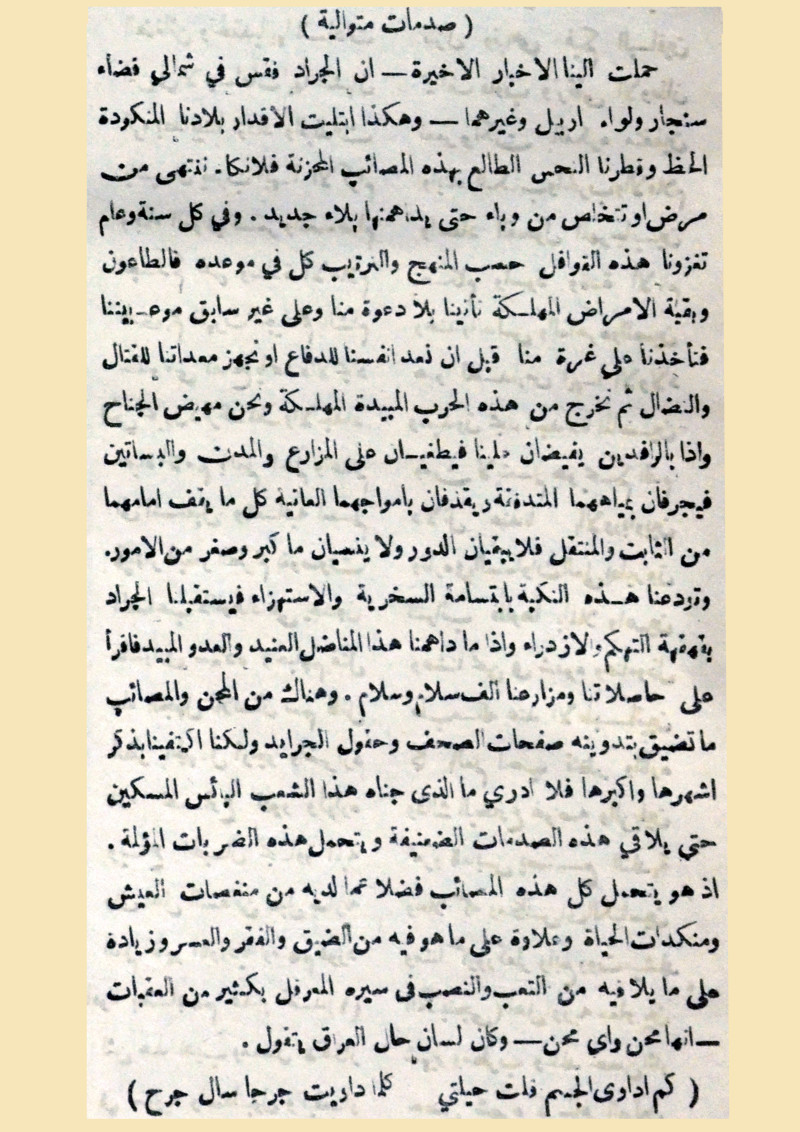 ( صدمات متوالية )
حملت الينا الاخبار الاخيرة — ان الجراد فقس في شمالي قضاء
سنجار ولواء اربيل وغيرهما — وهكذا ابتليت الاقدار بلادنا المنكودة
الحظ وقطرنا النحس الطالع بهذه المصائب المحزنة فلانكاد ننتهى من
مرض او نتخلص من وباء حتى يداهمنا بلاء جديد . وفي كل سنة وعام
تغزونا هذه القوافل حسب المنهج والترتيب كل في موعده فالطاعون
وبقية الامراض المهلكة تأتينا بلا دعوة منا وعلى غير سابق موعد بيننا
فتأخذنا على غرة منا قبل ان نعد انفسنا للدفاع او نجهز معداتنا للقتال
والنضال ثم نخرج من هذه الحرب المبيدة المهلكة ونحن مهيض الجناح
واذا بالرافدين يفيضان علينا فيطغيان على المزارع والمدن والبساتين
فيجرفان بمياههما المتدفقة ويقذفان بأمواجهما العاتية كل ما يقف امامهما
من الثابت والمنتقل فلا يبقيان الدور ولا ينسيان ما كبر وصغر من الامور.
وتودعنا هذه النكبة بابتسامة السخرية والاستهزاء فيستقبلنا الجراد
بقهقهة التهكم والازدراء واذا ما داهمنا هذا المناضل العنيد والعدو المبيد فاقرأ
على حاصلاتنا ومزارعنا الف سلام وسلام . وهناك من المحن والمصائب
ما تضيق بتدوينه صفحات الصحف وحقول الجرايد ولكنا اكتفينا بذكر
اشهرها واكبرها فلا ادري ما الذى جناه هذا الشعب البائس المسكين
حتى يلاقي هذه الصدمات العنيفة ويتحمل هذه الضربات المؤلمة .
اذ هو يتحمل كل هذه المصائب فضلا عما لديه من منغصات العيش
ومنكدات الحياة وعلاوة على ما هو فيه من الضيق والفقر والعسر وزيادة
على ما يلاقيه من التعب والنصب فى سيره المعرقل بكثير من العقبات
— انها محن واي محن — وكان لسان حال العراق يقول .
( كم اداوى الجسم قلت حيلتي كلما داويت جرحا سال جرح )